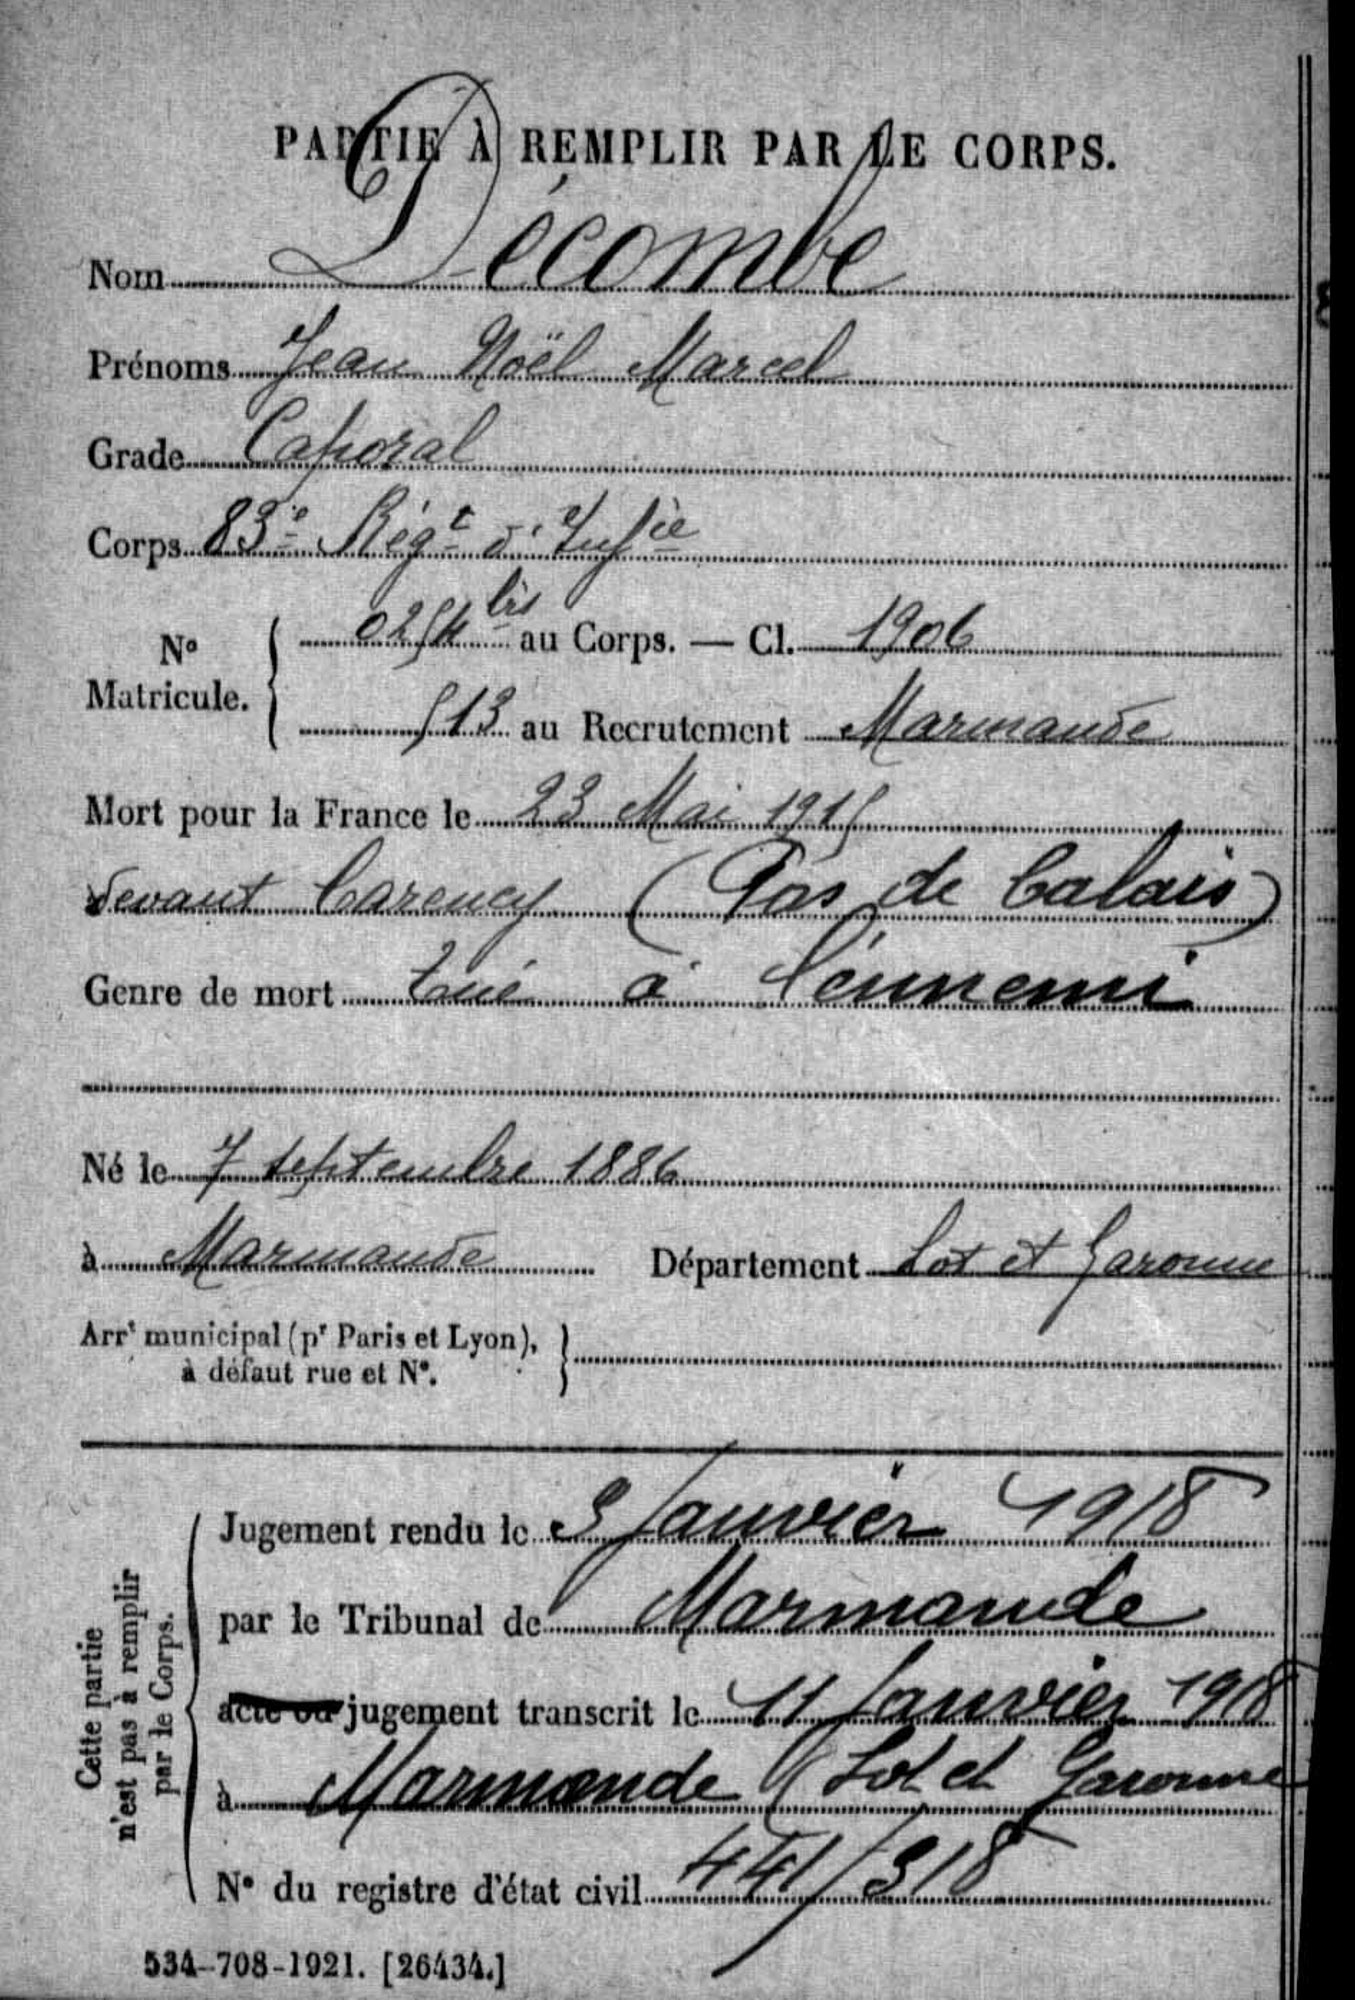 PARTIE À REMPLIR PAR LE CORPS.
Nom Décombe
Prénoms Jean Noël Marcel
Grade Caporal
Corps 83e Régt d'Infie
No Matricule. { 0254 bis au Corps. — Cl. 1906
513 au Recrutement Marmande
Mort pour la France le 23 Mai 1915
devant Carency (Pas de Calais)
Genre de mort tué à l'ennemi
Né le 7 septembre 1886
à Marmande Département Lot et Garonne
Arrt municipal (pr Paris et Lyon), }
à défaut rue et No.
Cette partie
n'est pas à remplir
par le Corps.
Jugement rendu le 3 Janvier 1918
par le Tribunal de Marmande
acte ou jugement transcrit le 11 Janvier 1918
à Marmande (Lot et Garonne
No du registre d'état civil 441/318
534-708-1921. [26434.]